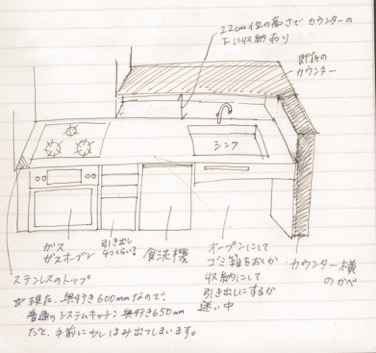 22cm位の高さでカウンターの
下に収納あり
既存の
カウンター
シンク
ガス
ガスオーブン
引き出し
4つくらい?
食洗機
オープンにして
ゴミ箱をおくか
収納にして
引き出しにするか
迷い中
カウンター横
のかべ
ステンレスのトップ
現在、奥行き600mmなので、
普通のシステムキッチン奥行き650mm
だと、手前に少しはみ出てしまいます。